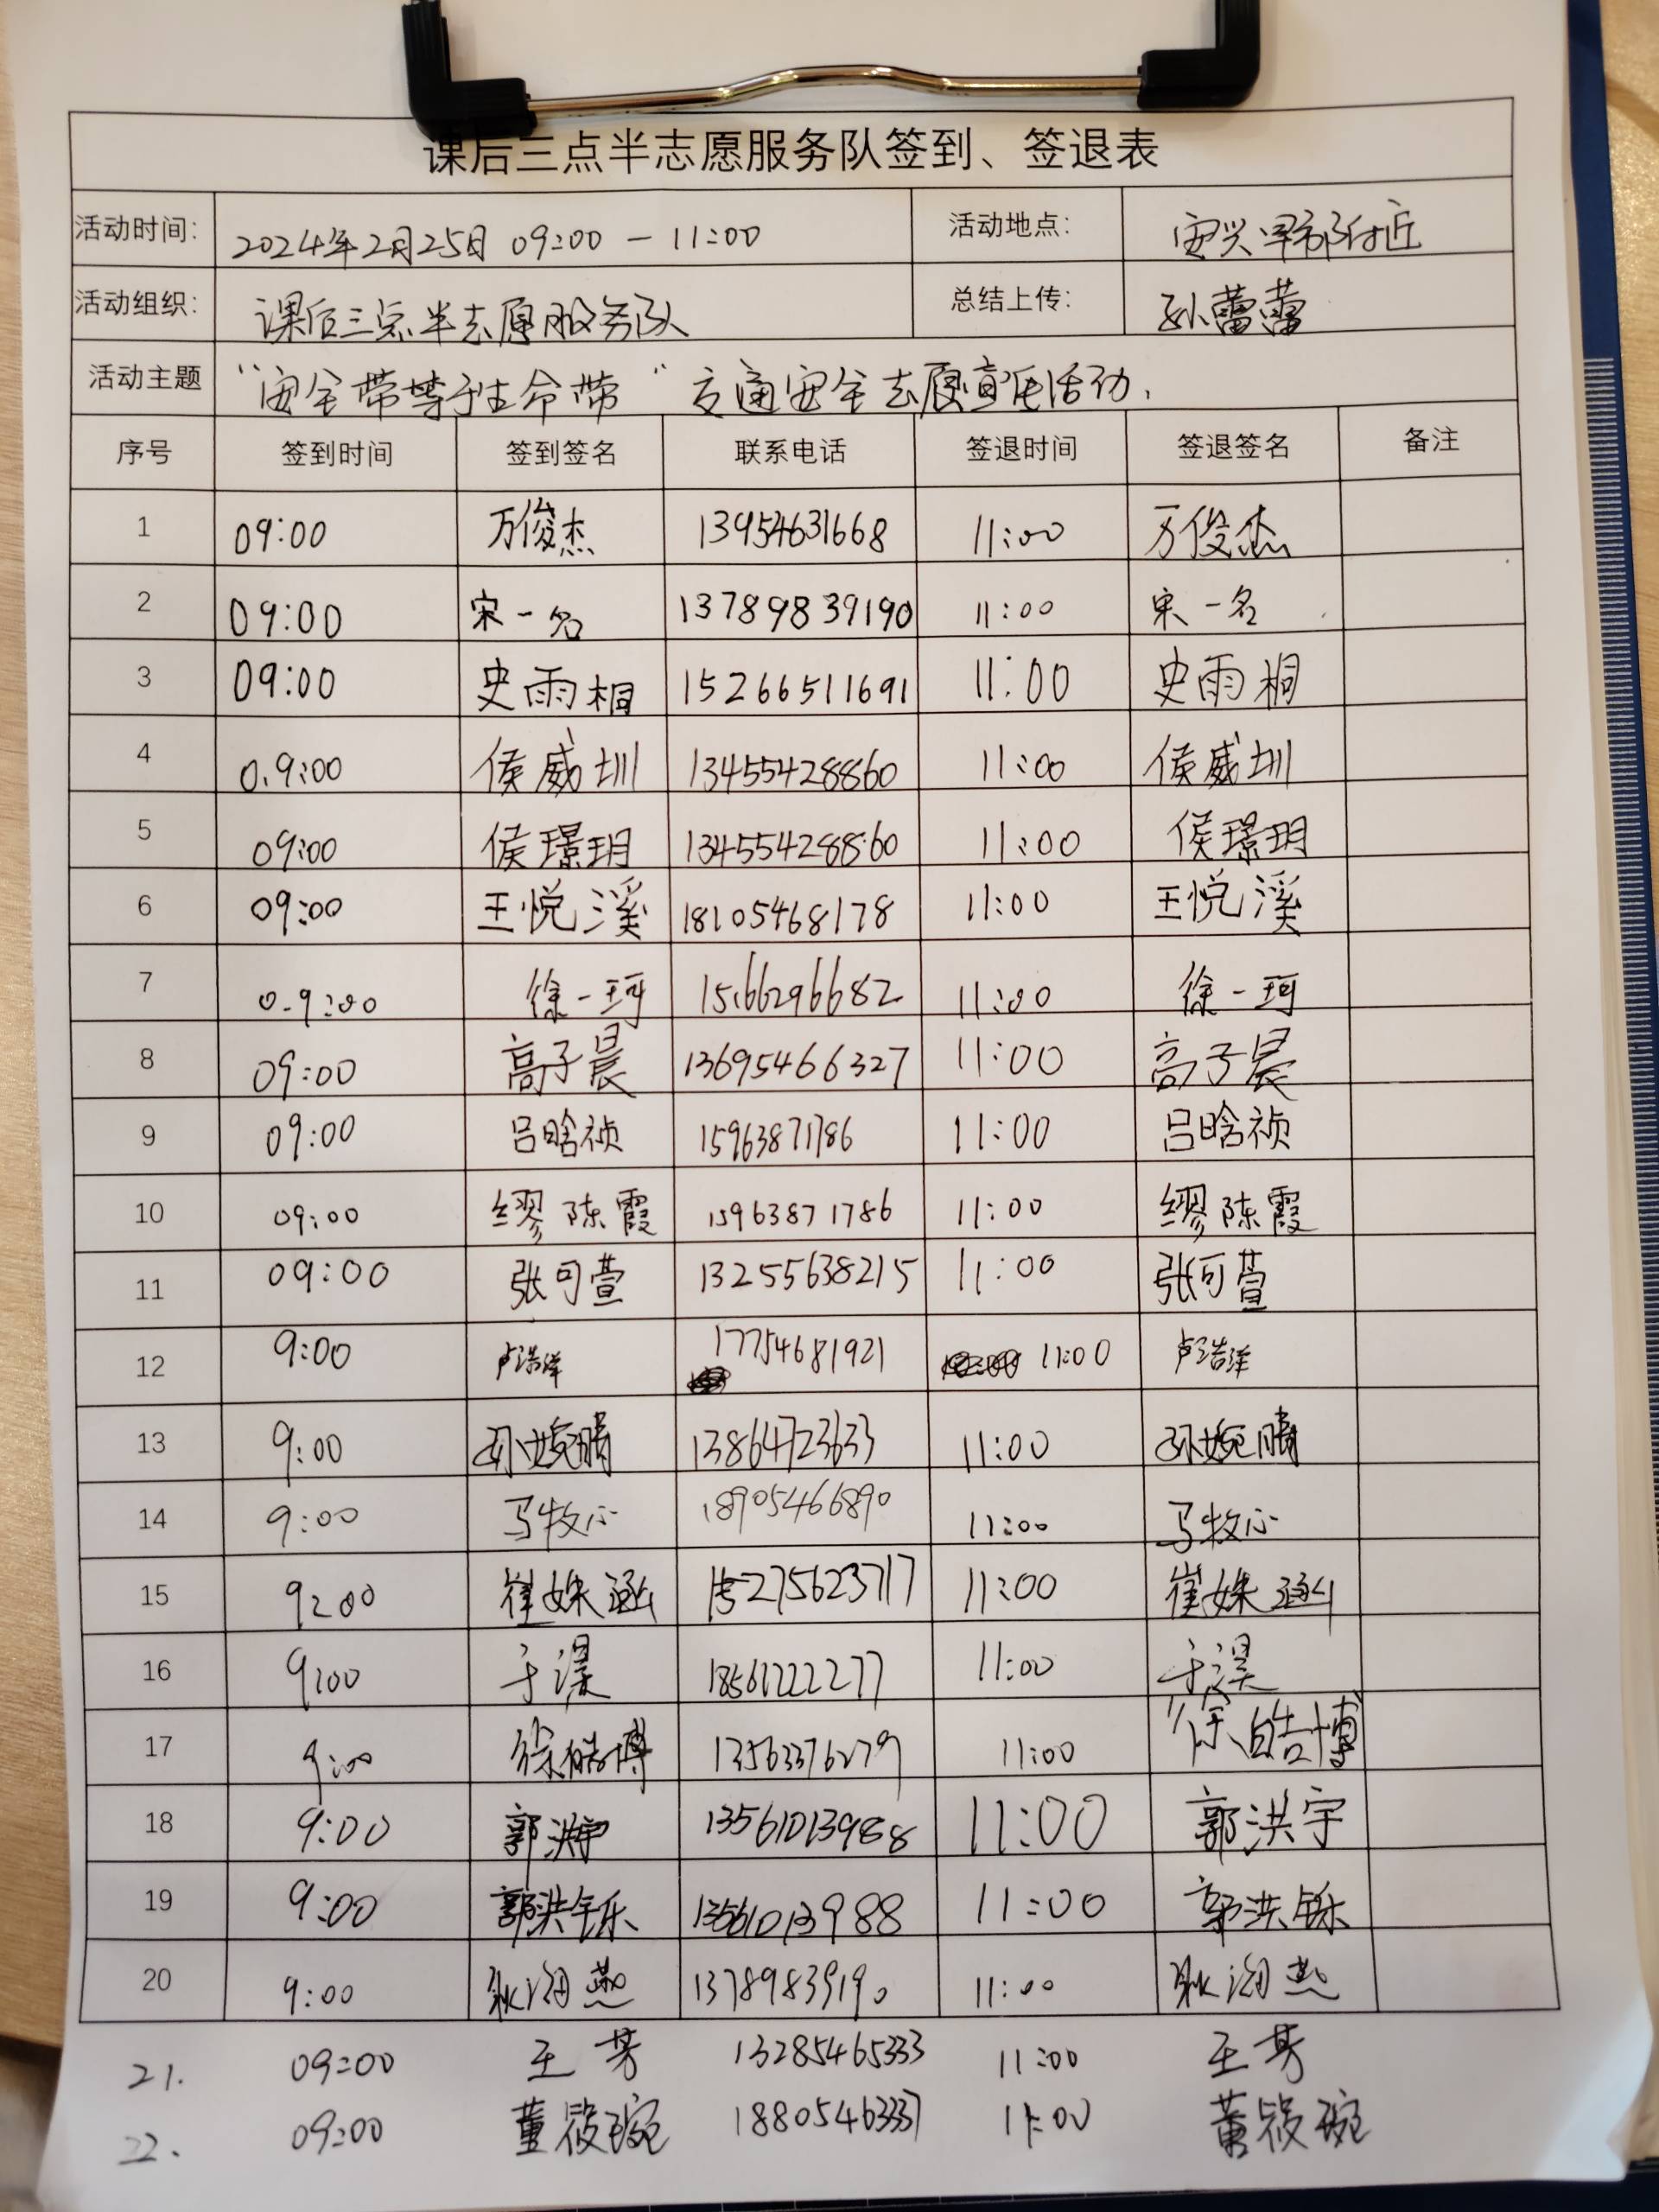 课后三点半志愿服务队签到、签退表
活动时间: 2024年2月25日 09:00 — 11:00 活动地点: 安兴早市附近
活动组织: 课后三点半志愿服务队 总结上传: 孙蕾蕾
活动主题 “安全带等于生命带” 交通安全志愿宣传活动.
序号 签到时间 签到签名 联系电话 签退时间 签退签名 备注
1 09:00 万俊杰 13954631668 11:00 万俊杰
2 09:00 宋一名 13789839190 11:00 宋一名
3 09:00 史雨桐 15266511691 11:00 史雨桐
4 0.9:00 侯威圳 13455428860 11:00 侯威圳
5 09:00 侯璟玥 13455428860 11:00 侯璟玥
6 09:00 王悦溪 18105468178 11:00 王悦溪
7 0.9:00 徐一珂 15166296682 11:00 徐一珂
8 09:00 高子晨 13695466327 11:00 高子晨
9 09:00 吕晗祯 15963871786 11:00 吕晗祯
10 09:00 缪陈霞 15963871786 11:00 缪陈霞
11 09:00 张可萱 13255638215 11:00 张可萱
12 9:00 卢浩洋 17754681921 11:00 卢浩洋
13 9:00 孙婉晴 13864723633 11:00 孙婉晴
14 9:00 马牧心 18905466890 11:00 马牧心
15 9:00 崔姝涵 15275623717 11:00 崔姝涵
16 9:00 于淏 18561222277 11:00 于淏
17 9:00 徐皓博 13563376279 11:00 徐皓博
18 9:00 郭洪宇 13561013988 11:00 郭洪宇
19 9:00 郭洪铄 13561013988 11:00 郭洪铄
20 9:00 耿海燕 13789839190 11:00 耿海燕
21. 09:00 王芳 13285465333 11:00 王芳
22. 09:00 董筱琬 18805463337 11:00 董筱琬